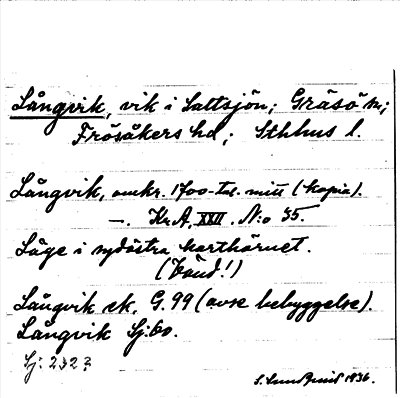 Långvik, vik i Saltsjön; Gräsö sn;
Frösåkers hd; Sthlms l.
Långvik, omkr. 1700-tal. mitt (kopia).
—. Kr.A, XXII. N:o 35.
Läge i sydöstra karthörnet.
(Vänd!)
Långvik ek. G. 99 (avse bebyggelse).
Långvik Sj. 60.
Sj: 2323
1936.